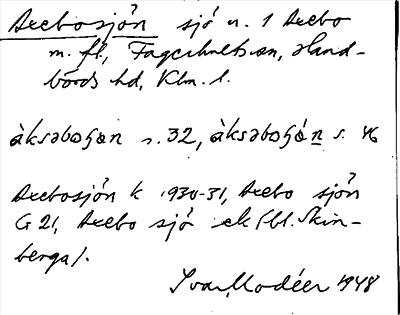 Axebosjön sjö n. 1 Axebo
m. fl., Fagerhults sn, Hand-
börds hd, Klm. l.
àksəboʃøn s. 32, àksəboʃǿn s. 46
Axebosjön k 1930-31, Axebo sjön
G 21, Axebo sjö ek (bl. Skin-
berga).
Ivar Modéer 1948